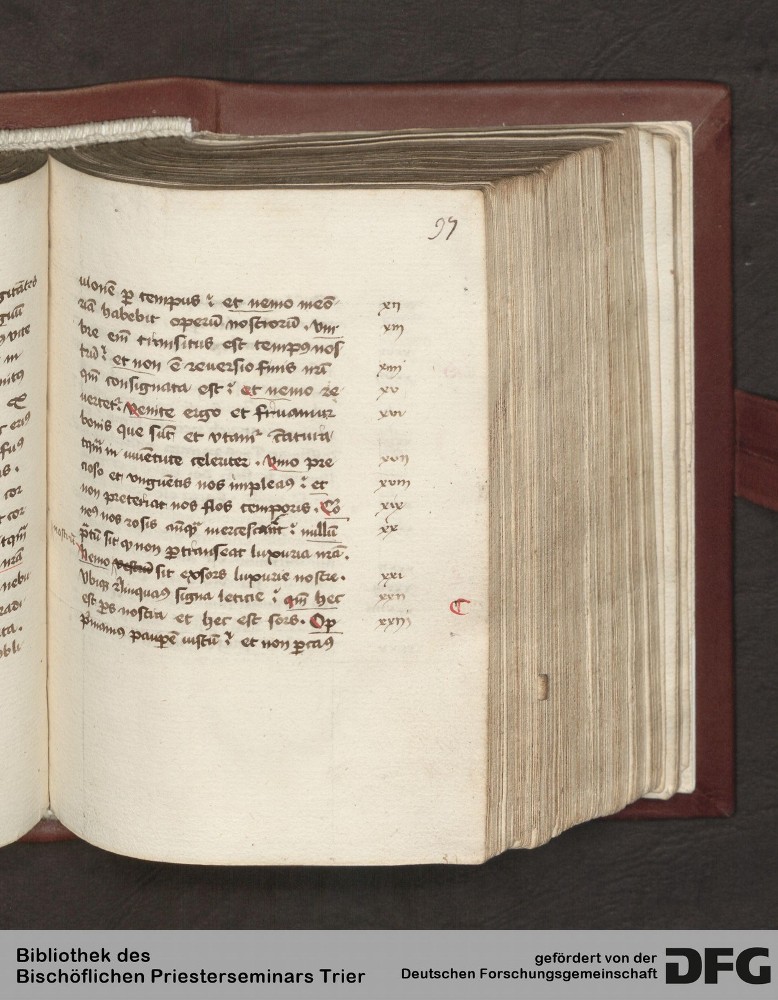 97
uionē ꝑ tempus : et nemo meō xii
riā habebit operū nostrorū . Vm xiii
bre em̄ transitus est tempꝰ nos
trū : et non ē reuersio finis nr̄i xiiii
qm̄ consignata est : et nemo re xv
uertet᷑ . Venite ergo et fruamur xvi
bonis que sūt et vtam᷑ c̄atura
tqm̄ in iuuentute celeriter . Vino pre xvii
cioso et vnguētis nos impleaꝰ : et xviii
non pretereat nos flos temporis . Co xix
neꝰ nos rosis an̄qͣ mercescant : nullū xx
p̄tū sit qͦ non ꝑtranseat luxuria nr̄a .
nostrū
Nemo vestrū sit exsors luxurie nostre . xxi
Vbiqꝫ relinquaꝰ signa leticie : qm̄ hec xxii
est ꝑs nostra et hec est sors . Op xxiii
p̄mamꝰ pauꝑē iustū : et non ꝑcaꝰ
Bibliothek des
Bischöflichen Priesterseminars Trier
gefördert von der
Deutschen Forschungsgemeinschaft
DFG